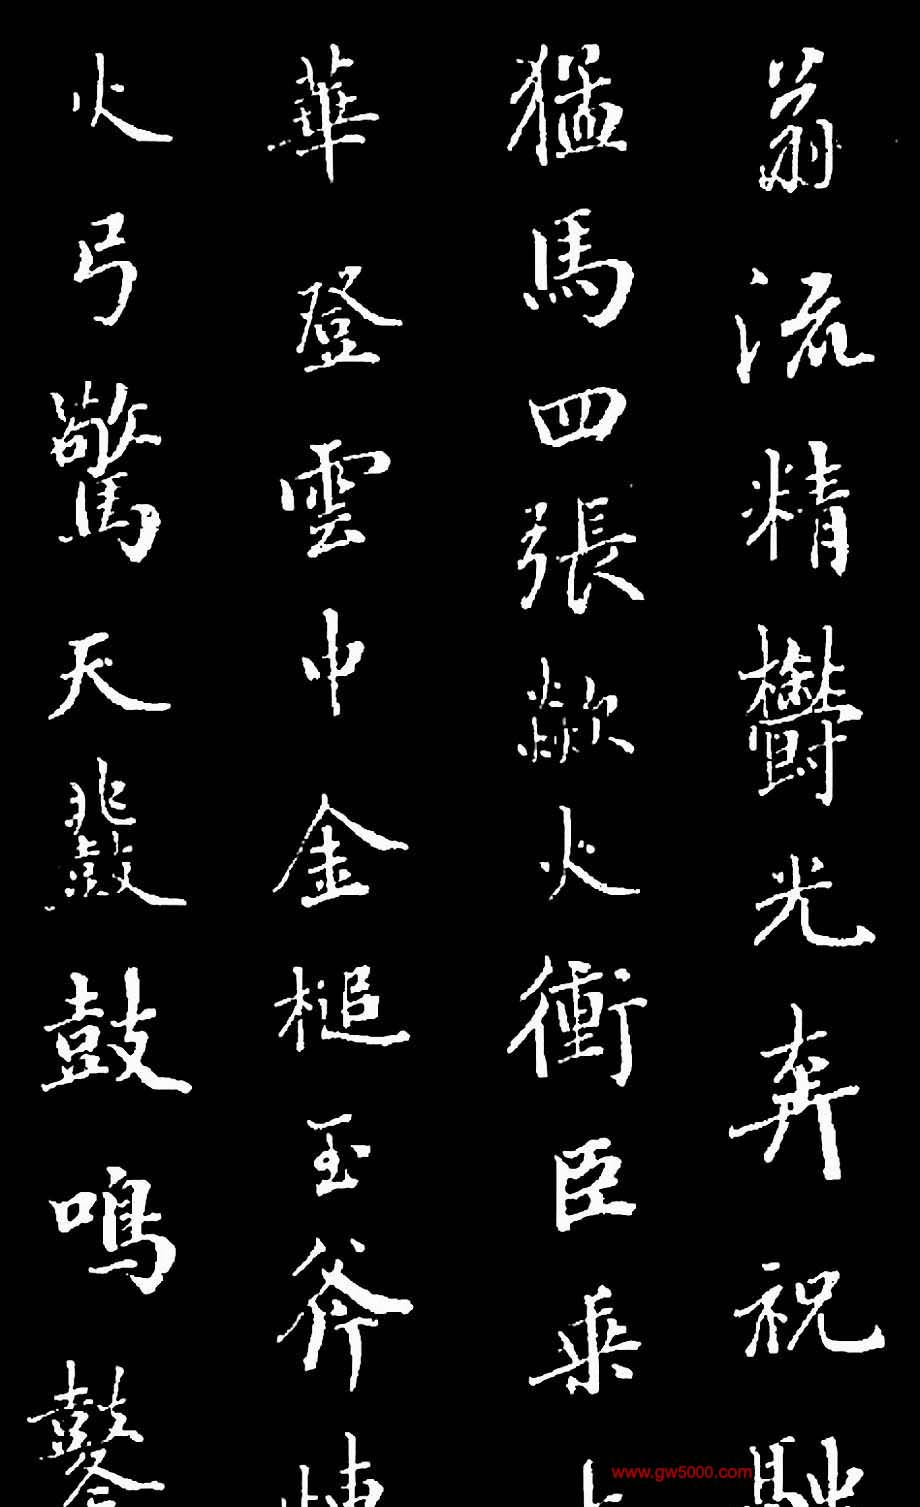 翁流精鬱光奔祝融
猛馬四張歘火衝臣乘
華登雲中金槌玉斧
火弓驚天鼙鼓鳴鼕
www.gw5000.com